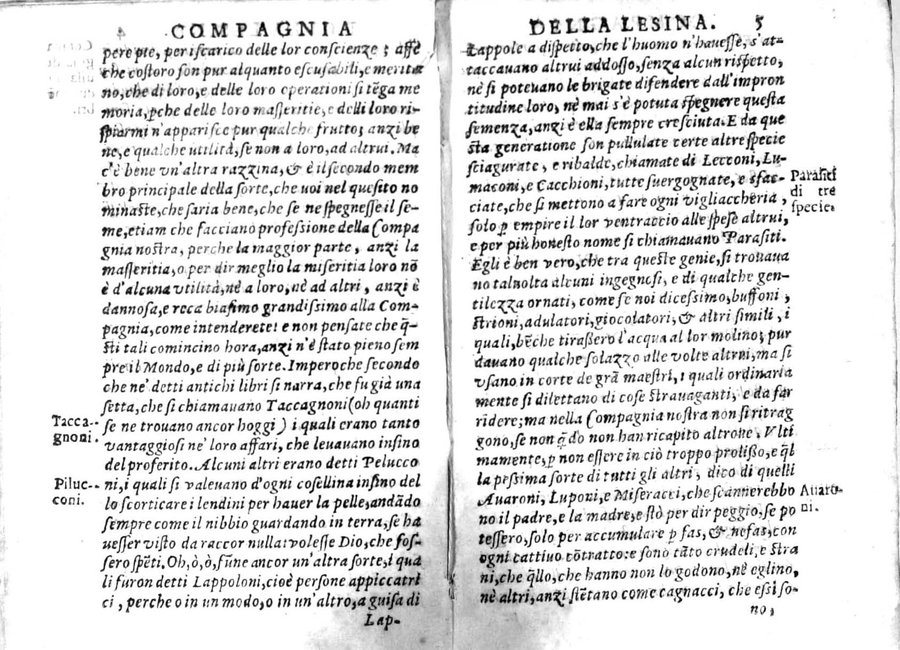 4 COMPAGNIA
pere pie, per iscarico delle lor conscienze; affè
che costoro son pur alquanto escusabili, e merita
no, che di loro, e delle loro operationi si tẽga me
moria, pche delle loro masseritie, e delli loro ri-
spiarmi n'apparisce pur qualche frutto; anzi be
ne, e qualche utilità, se non a loro, ad altrui. Ma
c'è bene un'altra razzina, & è il secondo mem
bro principale della sorte, che voi nel quesito no
minaste, che saria bene, che se ne spegnesse il se-
me, etiam che facciano professione della Compa
gnia nostra, perche la maggior parte, anzi la
masseritia, o per dir meglio la miseritia loro nõ
è d'alcuna utilità, nè a loro, nè ad altri, anzi è
dannosa, e reca biasimo grandissimo alla Com-
pagnia, come intenderete: e non pensate che q̃-
sti tali comincino hora, anzi n'è stato pieno sem
pre il Mondo, e di più sorte. Imperoche secondo
che ne' detti antichi libri si narra, che fu già una
setta, che si chiamauano Taccagnoni (oh quanti
se ne trouano ancor hoggi) i quali erano tanto
vantaggiosi ne' loro affari, che leuauano insino
del proferito. Alcuni altri erano detti Pelucco
ni, i quali si valeuano d'ogni cosellina insino del
lo scorticare i lendini per hauer la pelle, andãdo
sempre come il nibbio guardando in terra, se ha
uesser visto da raccor nulla: volesse Dio, che fos-
sero spẽti. Oh, ò, ò, fũne ancor un'altra sorte, i qua
li furon detti Lappoloni, cioè persone appiccatri
ci, perche o in un modo, o in un'altro, a guisa di
Lap-
Tacca-
gnoni.
Piluc-
coni.
DELLA LESINA. 5
Lappole a dispetto, che l'huomo n'hauesse, s'at-
taccauano altrui addosso, senza alcun rispetto,
nè si poteuano le brigate difendere dall'impron
titudine loro, nè mai s'è potuta spegnere questa
semenza, anzi è ella sempre cresciuta. E da que
sta generatione son pullulate certe altre specie
sciagurate, e ribalde, chiamate di Lecconi, Lu-
maconi, e Cacchioni, tutte suergognate, e sfac-
ciate, che si mettono a fare ogni vigliaccheria,
solo p empire il lor ventraccio alle spese altrui,
e per più honesto nome si chiamauano Parasiti.
Egli è ben vero, che tra queste genie, si trouaua
no talnolta alcuni ingegnosi, e di qualche gen-
tilezza ornati, come se noi dicessimo, buffoni,
strioni, adulatori, giocolatori, & altri simili, i
quali, bẽche tirassero l'acqua al lor molino; pur
dauano qualche solazzo alle volte altrui, ma si
vsano in corte de grã maestri, i quali ordinaria
mente si dilettano di cose strauaganti, e da far
ridere; ma nella Compagnia nostra non si ritrag
gono, se non q̃do non han ricapito altrone. Vlti
mamente, p non essere in ciò troppo prolisso, e q̃l
la pessima sorte di tutti gli altri, dico di quelli
Auaroni, Luponi, e Miseracci, che scannerebbo
no il padre, e la madre, e stò per dir peggio, se po
tessero, solo per accumulare p fas, & nefas, con
ogni cattiuo cõtratto: e sono tãto crudeli, e stra
ni, che q̃llo, che hanno non lo godono, nè eglino,
nè altri, anzi stẽtano come cagnacci, che essi so-
no,
Parasiti
di tre
specie.
Auaro-
ni.